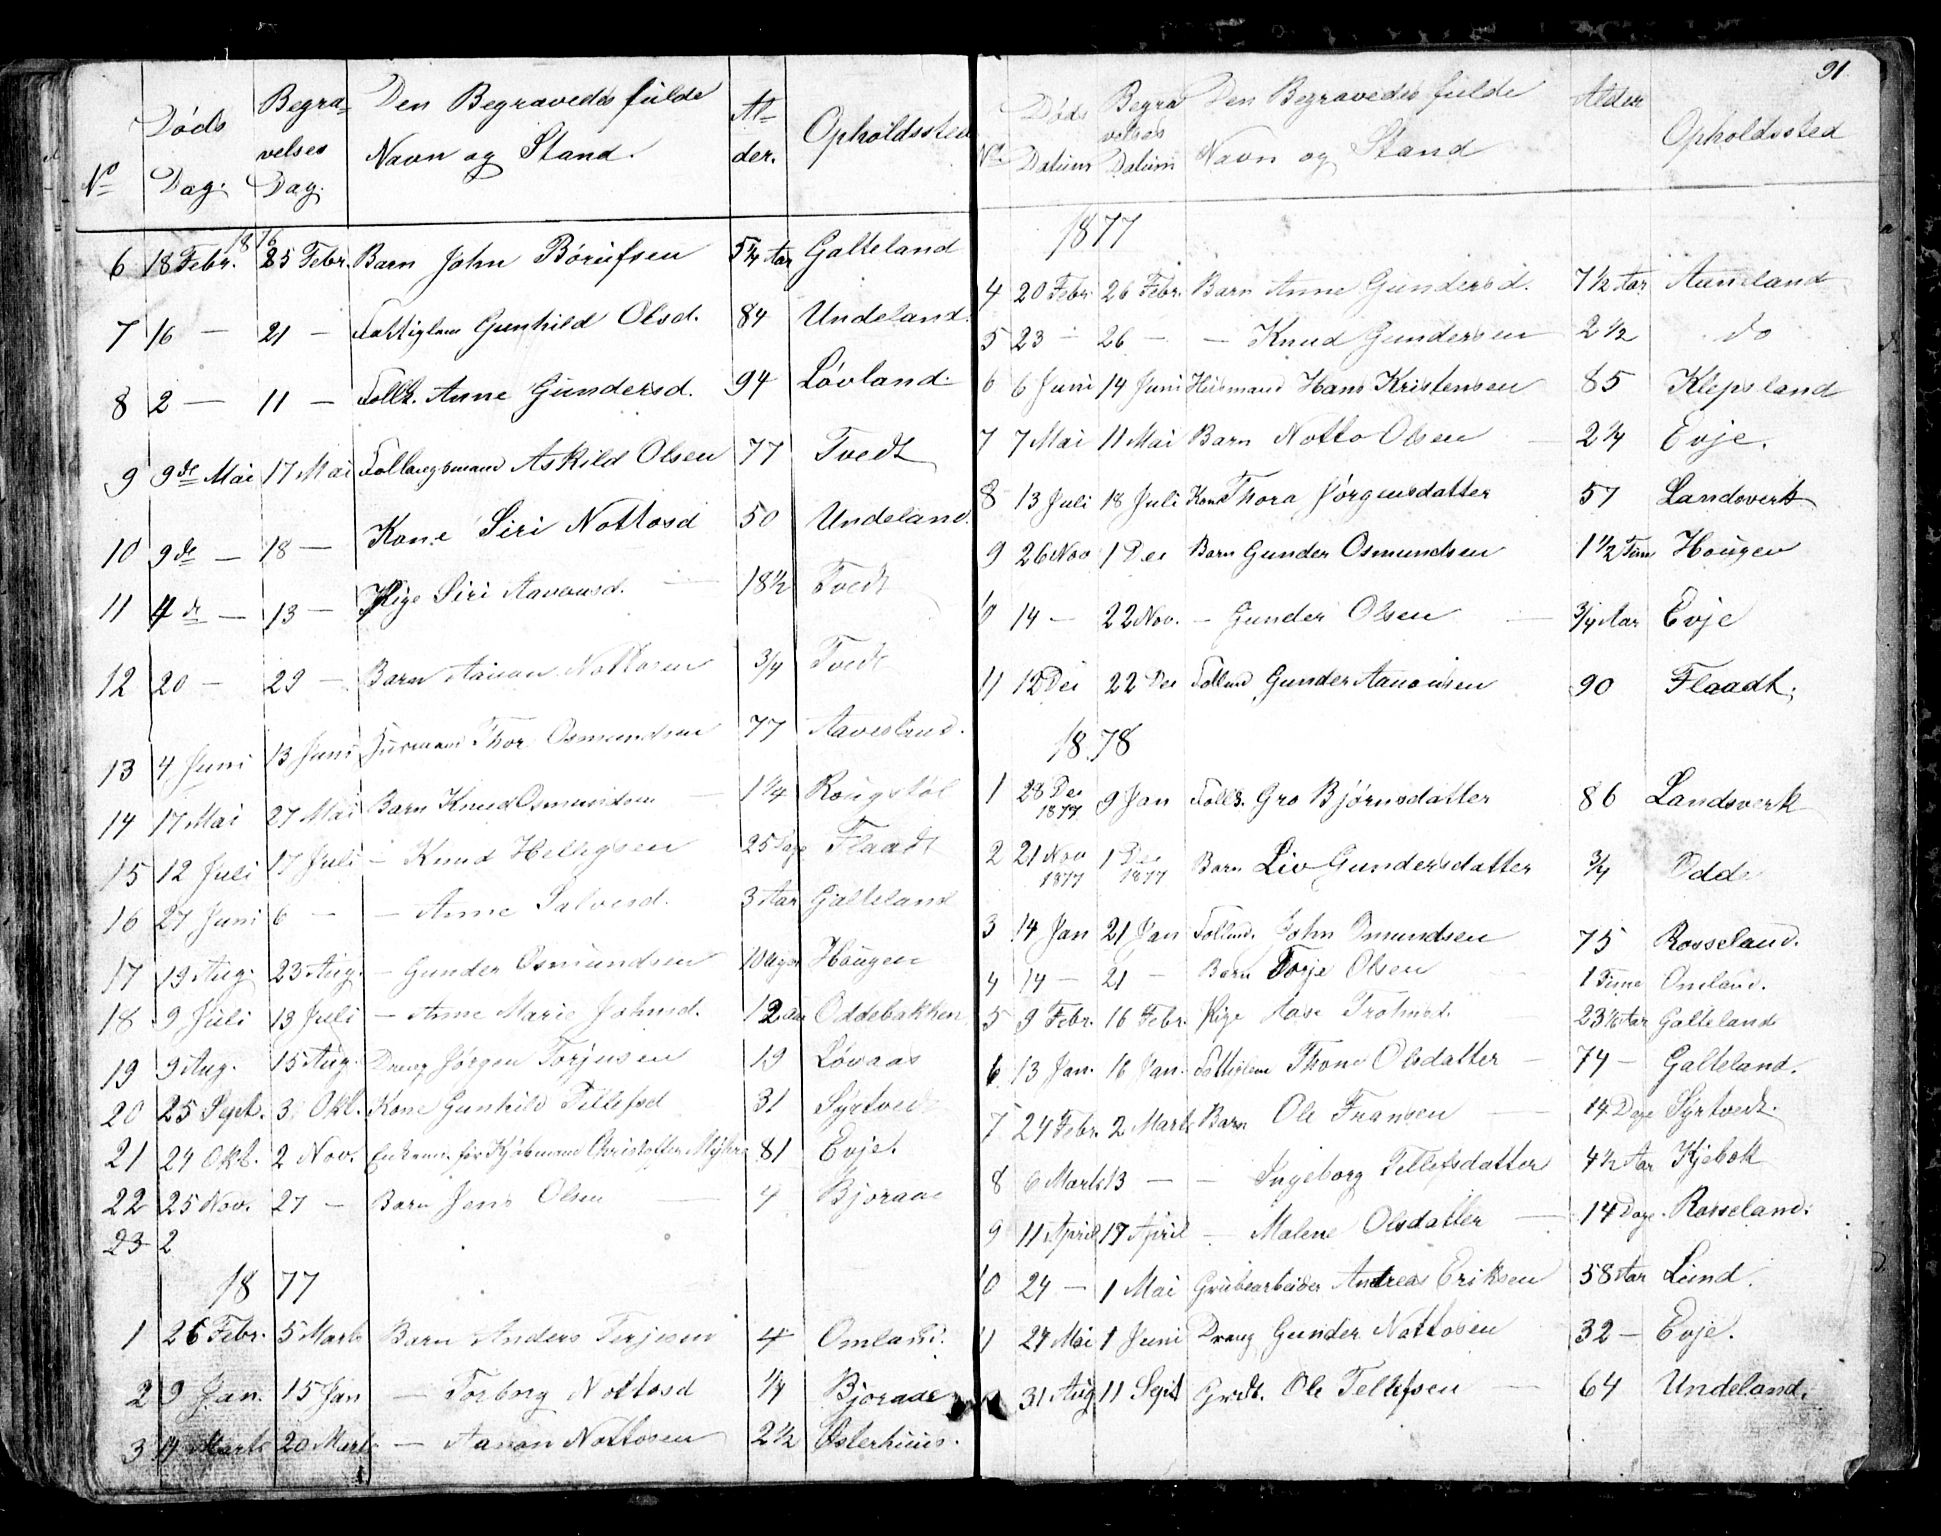 Nº Døds Dag. Begravelses Dag. Den Begravedes fulde Navn og Stand. Alder. Opholdssted
1876
6 18 Febr. 25 Febr. Barn John Børufsen 5 1/4 Aar Galteland
7 16 — 21 — Fattiglem Gunhild Olsd. 84 Undeland.
8 2 — 11 — Follk. Anne Gundersd. 94 Løvland.
9 9de Mai 17 Mai Askild Olsen 77 Tvedt
10 9de — 18 — Kone Siri Nottosd 50 Undeland.
11 4de — 13 — Pige Siri Aanonsd. 18 1/2 Tvedt
12 20 — 29 — Barn Aanon Nottosen 3/4 Tvedt
13 4 Juni 13 Juni Thor Osmundsen 77 Aavestrud.
14 17 Mai 27 Mai Barn Knud Osmundsen — 1 1/4 Rougstøl
15 12 Juli 17 Juli — Knud Helligsen 25 Dage Flaadt
16 27 Juni 6 — — Anne Salvesd. 3 Aar Galteland
17 19 Aug. 23 Aug. — Gunder Osmundsen 10 Haugen
18 9 Juli 13 Juli — Anne Marie Johnsd. 12 Oddebakken
19 9 Aug. 15 Aug. Dreng Jørgen Torjusen 19 Løvaas
20 25 Sept. 3 Okt. Kone Gunhild Tellefsd 31 Syrtvedt
21 24 Okt. 2 Nov. Christoffer 81 Evje.
22 25 Nov. 27 — Barn Jens Olsen — 4 Bjoraae
23 2
1877
1 26 Febr. 5 Marts Barn Anders Terjesen 4 Omland.
2 9 Jan. 15 Jan — Torborg Nottosd 1/4 Bjoraae
3 14 Marts 20 Marts — Aanon Nottosen 2 1/2 Østerhuus.
91.
Nº Døds Datum Begravelses Datum Den Begravedes fulde Navn og Stand Alder Opholdssted
1877
4 20 Febr. 26 Febr. Barn Anne Gundersd. 7 1/2 Aar Auneland
5 23 — 26 — — Knud Gundersen 2 1/2 do
6 6 Juni 14 Juni Huusmand Hans Kristensen 85 Klepsland
7 7 Mai 11 Mai Barn Notto Olsen — 2 1/4 Evje.
8 13 Juli 18 Juli Kone Thora Jørgensdatter 57 Landsverk
9 26 Nov 1 Dec Barn Gunder Osmundsen 1 1/2 Time Haugen
10 14 — 22 Nov. — Gunder Olsen — 3/4 Aar Evje
11 12 Dec 22 Dec Follmd Gunder Aanonsen 90 Flaadt.
1878
1 28 Dec 1877 9 Jan Follk. Gro Bjørnsdatter 86 Landsverk
2 21 Nov 1877 1 Dec 1877 Barn Liv Gundersdatter 3/4 Odde
3 14 Jan 21 Jan Follmd. John Omundsen 75 Rosseland.
4 14 — 21 — Barn Torje Olsen — 1 Time Omland.
5 9 Febr. 16 Febr. Pige Aase 23 1/2 Aar Galteland
6 13 Jan. 16 Jan. Fattiglem Thone Olsdatter — 74 — Galteland.
7 24 Febr. 2 Marts Barn Ole Fransen — 14 Dage Syrtvedt.
8 6 Marts 13 — — Ingeborg Tellefsdatter 4 1/2 Aar Kjebok
9 11 April 17 April — Malene Olsdatter — 14 Dage. Rosseland.
10 24 — 1 Mai Grubearbeider Andreas Eriksen 58 Aar Lund.
11 24 Mai 1 Juni Dreng Gunder Nottosen 32 — Evje.
31 Aug 11 Sept Grdb. Ole Tellefsen — 64 Undeland.